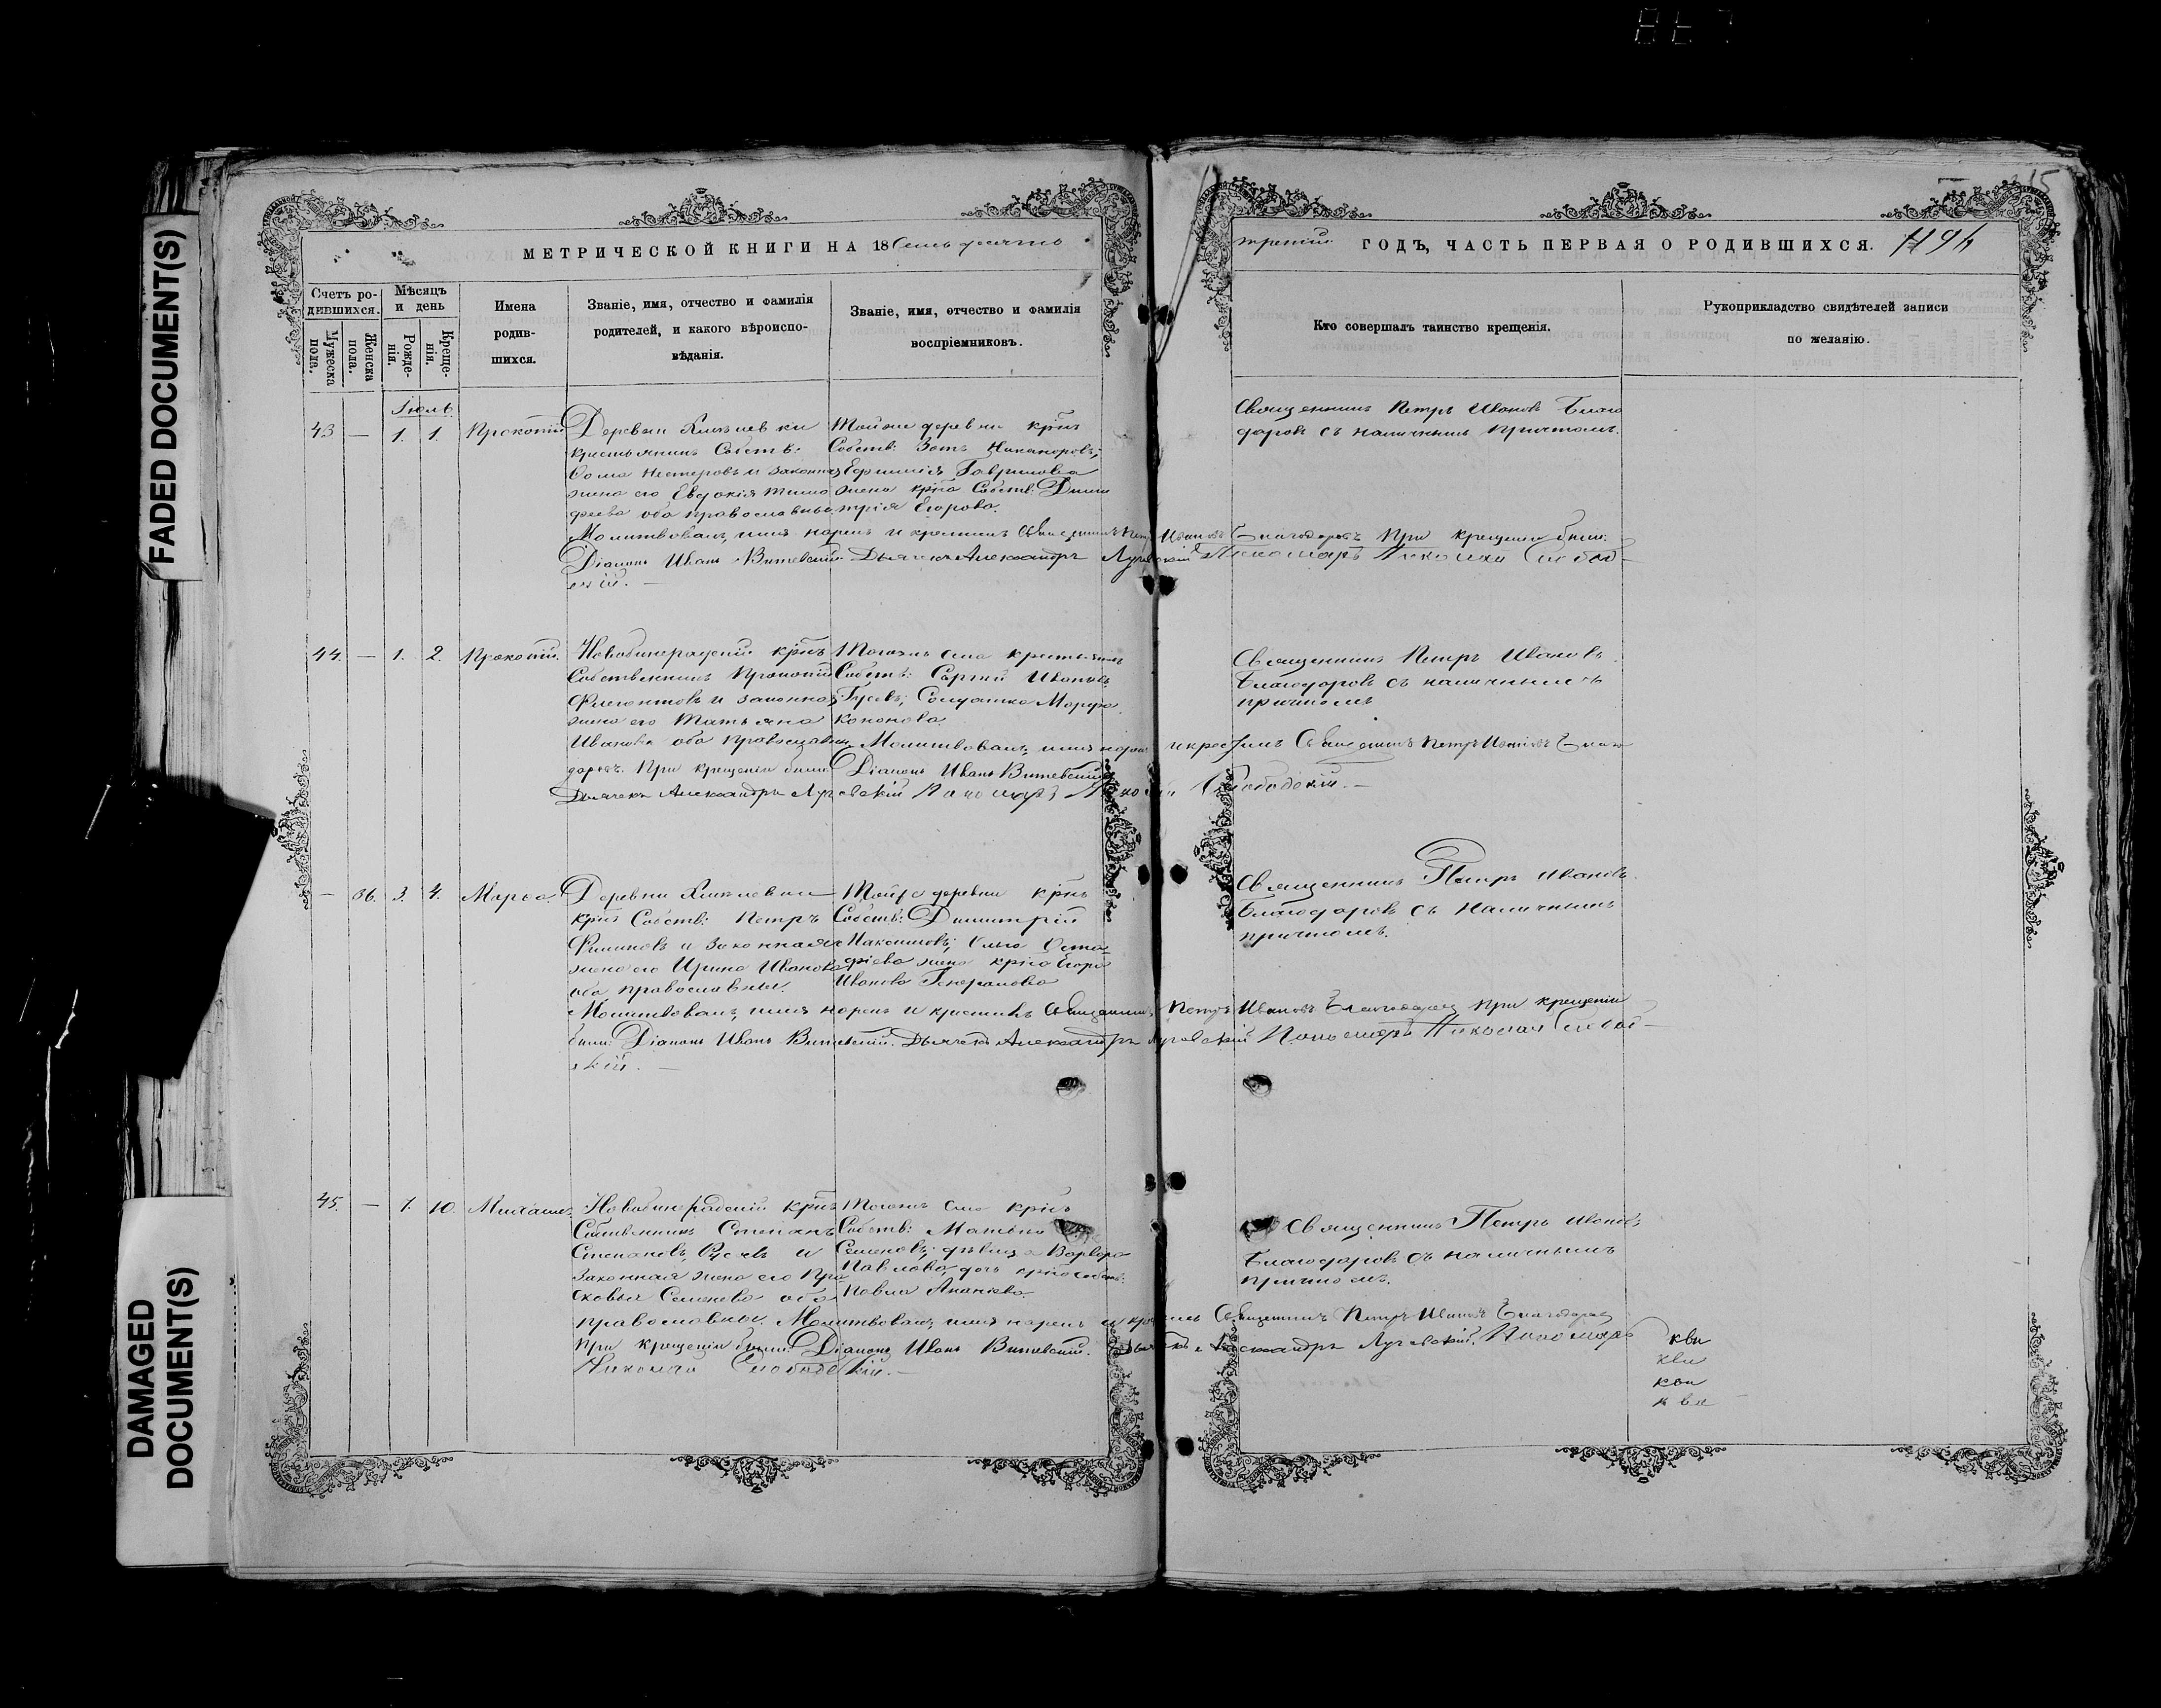 FADED DOCUMENT(S)
DAMAGED
DOCUMENT(S)
МЕТРИЧЕСКОЙ КНИГИ НА 18
Счетъ ро-
дившихся.
Мужеска
пола.
Женска
пола.
Мѣсяцъ
и день
Рожде-
нія.
Креще-
нія.
Имена
родив-
шихся.
Званіе, имя, отчество и фамилія
родителей, и какого вѣроиспо-
вѣданія.
Званіе, имя, отчество и фамилія
воспріемниковъ.
третій ГОДЪ, ЧАСТЬ ПЕРВАЯ О РОДИВШИХСЯ.
Кто совершалъ таинство крещенія.
Рукоприкладство свидѣтелей записи
по желанію.
Іюль
43 — 1. 1. Прокопій
Деревни
крестьянинъ Собств:
Ѳома Нестеровъ и законная
жена его Евдокія Тимо
феева оба православные
Тойже деревни крнъ
Собств: Зотъ Никаноровъ;
Ефимія Гаврилова
жена крна Собств: Дими
трія Егорова.
Священникъ Петръ Ивановъ Благо
даровъ съ наличнымъ причтомъ.
Молитвовалъ, имя нарекъ и крестилъ Священникъ Петръ Ивановъ Благодаровъ При крещеніи были:
Діаконъ Иванъ Витевскій Дьячекъ Александръ Лугевскій Пономарь Николай Слобод-
скій. —
44. — 1. 2. Прокопій.
крнъ
Собственникъ Прокопій
и законная
жена его Татьяна
Иванова оба православные
Тогожъ села крестьянинъ
Собств: Сергій Ивановъ
Гусевъ; Солдатка Марфа
Кононова.
Священникъ Петръ Ивановъ
Благодаровъ съ наличнымъ
причтомъ
Молитвовалъ, имя нарекъ и крестилъ Священникъ Петръ Ивановъ Благо
даровъ. При крещеніи были Діаконъ Иванъ Витевскій
Дьячекъ Александръ Лугевскій Пономарь Николай Слободскій. —
— 36. 3. 4. Марѳа.
Деревни
крнъ Собств: Петръ
Филиповъ и законная
жена его Ирина Иванова
оба православны.
Тойже деревни крнъ
Собств: Димитрій
Максимовъ; Ольга Оста-
фіева жена крна Егора
Иванова
Священникъ Петръ Ивановъ
Благодаровъ съ наличнымъ
причтомъ.
Молитвовалъ, имя нарекъ и крестилъ Священникъ Петръ Ивановъ Благодаровъ При крещеніи
были: Діаконъ Иванъ Витевскій. Дьячекъ Александръ Лугевскій Пономарь Николай Слобод-
скій. —
45. — 7. 10. Михаилъ.
крнъ
Собственникъ Степанъ
Степановъ и
законная жена его Пра
сковья Семенова оба
православны.
Тогожъ села крнъ
Собств: Матвей
Семеновъ; дѣвица Варвара
Павлова, дочь
Павла Ананіева.
Священникъ Петръ Ивановъ
Благодаровъ съ наличнымъ
причтомъ.
Молитвовалъ, имя нарекъ и крестилъ Священникъ Петръ Ивановъ Благодаровъ
При крещеніи были: Діаконъ Иванъ Витевскій. Дьячекъ Александръ Лугевскій. Пономарь
Николай Слободскій. —